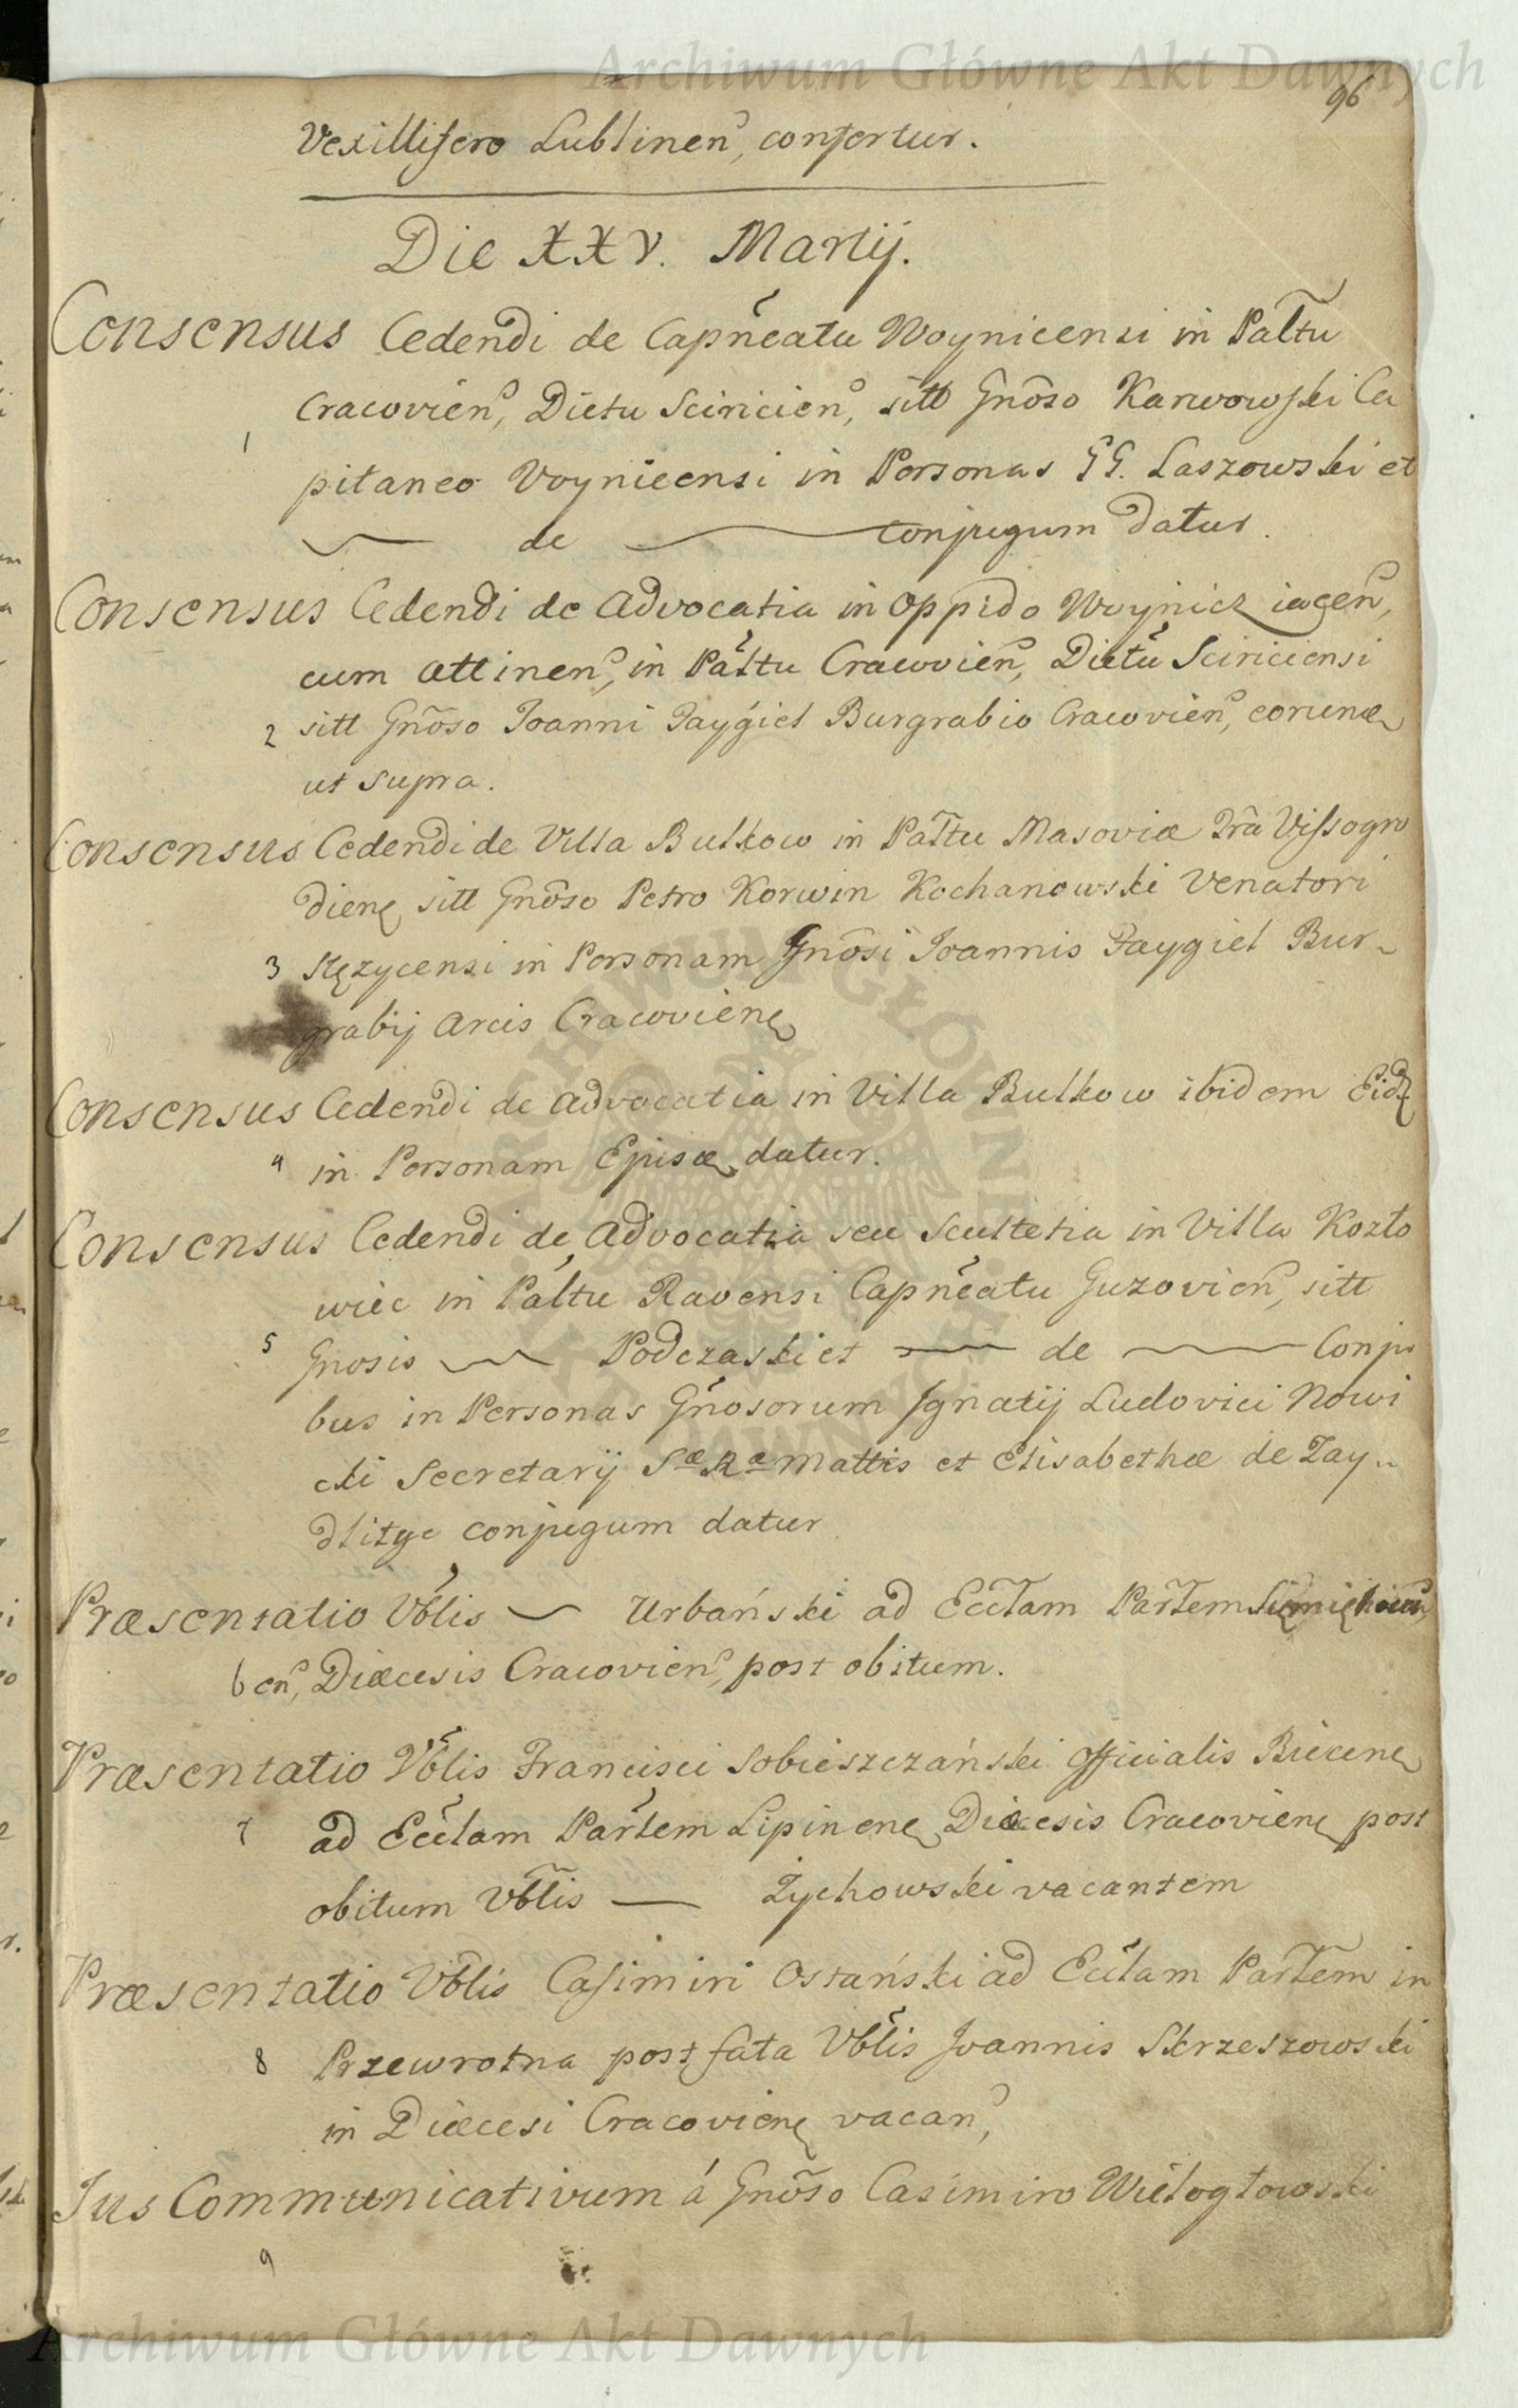 Archiwum Główne Akt Dawnych
96
Vexillifero Lublinen, confertur.
Die XXV. Martij.
Consensus Cedendi de Capñeatu Woynicensi in Palt̃u
Cracovien, Dictu Sciricien, sitt Gnõso Karwowski Ca
1 pitaneo Voynicensi in Personas GG. Laszowski et
de conjugum datur.
Consensus Cedendi de Advocatia in Oppido Woynicz iacen,
cum attinen, in Palt̃u Cracovien, Dictu Sciriciensi
2 sitt Gnõso Joanni Jaygiel Burgrabio Cracovien, eorunde
ut supra.
Consensus Cedendi de Villa Bulkow in Palt̃u Masoviæ Trã Vissogro
dien sitt Gnõso Petro Korwin Kochanowski Venatori
3 Stężycensi in Personam Gnõsi Joannis Jaygiel Bur
grabij Arcis Cracovien
Consensus Cedendi de Advocatia in Villa Bulkow ibidem Eid
4 in Personam Ejusde datur.
Consensus Cedendi de Advocatia seu Scultetia in Villa Kozło
wiec in Palt̃u Ravensi Capñeatu Guzovien, sitt
5 Gnosis Podczaski et de Conju
bus in Personas Gñosorum Ignatij Ludovici Nowi
cki Secretarij Sæ Ræ Mattis et Elisabethæ de Zay
dlitye conjugum datur
Præsentatio Vblis Urbański ad Ecclam Partem
6 en, Diæcesis Cracovien, post obitum.
Præsentatio Vblis Francisci Sobieszczański Officialis Biecen
7 ad Ecclam Partem Lipinen Diæcesis Cracovien post
obitum Vblis Żychowski vacantem
Præsentatio Vblis Casimiri Ostański ad Ecclam Partem in
8 Przewrotna post fata Vblis Joannis Skrzeszowski
in Diæcesi Cracovien vacan,
Jus Communicativum á Gnõso Casimiro Wielogłowski
9
Archiwum Główne Akt Dawnych